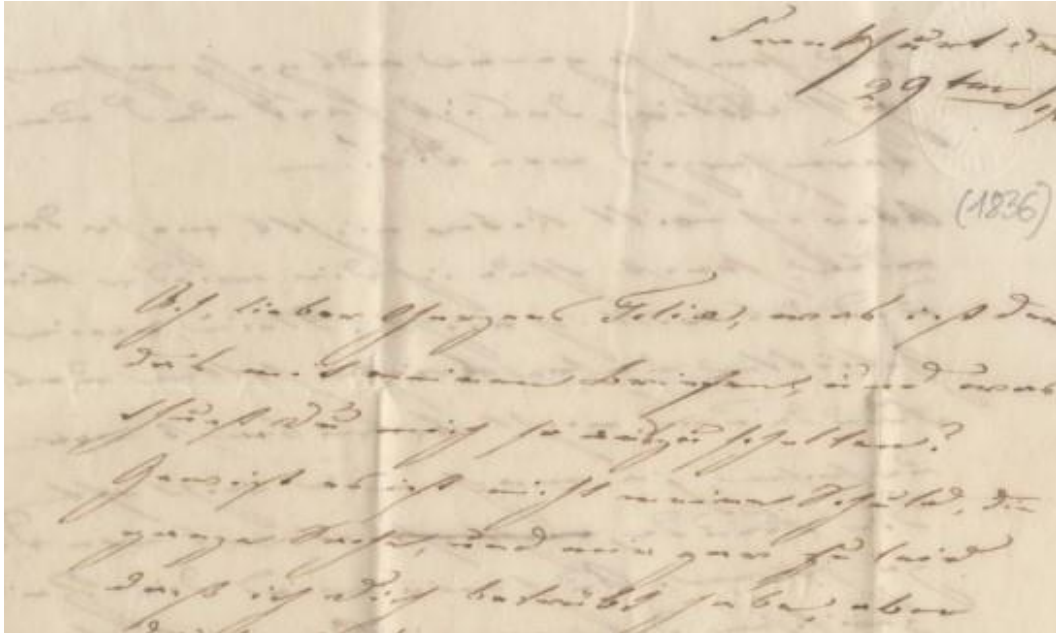 Frankfurt d
29ten Se
(1836)
Ach, lieber Herzens Felix, was ist den
das mit meinen Briefen, und was
thust Du mich so auszuschelten?
Gewiß es ist nicht meine Schuld, die
ganze Sache, und mir gar zu leid
daß ich Dich betrübt habe, aber